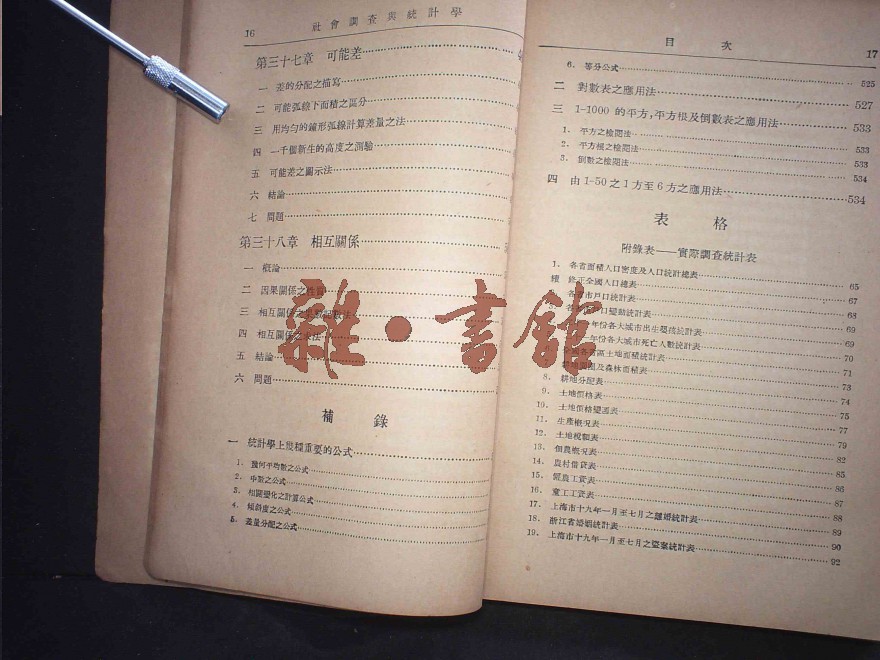 16
社會調查與統計學
第三十七章 可能差
一 差的分配之描寫
二 可能弧線下面積之區分
三 用均勻的鐘形弧線計算差量之法
四 一千個新生的高度之測驗
五 可能差之圖示法
六 結論
七 問題
第三十八章 相互關係
一 概論
二 因果關係之性質
三 相互關係之
四 相互關係之求法
五 結論
六 問題
補錄
一 統計學上幾種重要的公式
1. 幾何平均數之公式
2. 中數之公式
3. 相關變化之計算公式
4. 傾斜度之公式
5. 差量分配之公式
目次
17
6. 等分公式 525
二 對數表之應用法 527
三 1-1000 的平方,平方根及倒數表之應用法 533
1. 平方之檢閱法 533
2. 平方根之檢閱法 533
3. 倒數之檢閱法 534
四 由1-50之1方至6方之應用法 534
表格
附錄表——實際調查統計表
1. 各省面積人口密度及人口統計總表 65
續 修正全國人口總表 67
各省市戶口統計表 68
口變動統計表 69
年份各大城市出生 統計表 69
年份各大城市死亡人數統計表 70
區土地面積統計表 71
及森林面積表 73
8. 耕地分配表 74
9. 土地價格表 75
10. 土地價格變遷表 77
11. 生產概況表 79
12. 土地稅額表 82
13. 佃農概況表 85
14. 農村借貸表 86
15. 僱農工資表 87
16. 童工工資表 88
17. 上海市十九年一月至七月之離婚統計表 89
18. 浙江省婚姻統計表 90
19. 上海市十九年一月至七月之盜案統計表 92
雜·書館